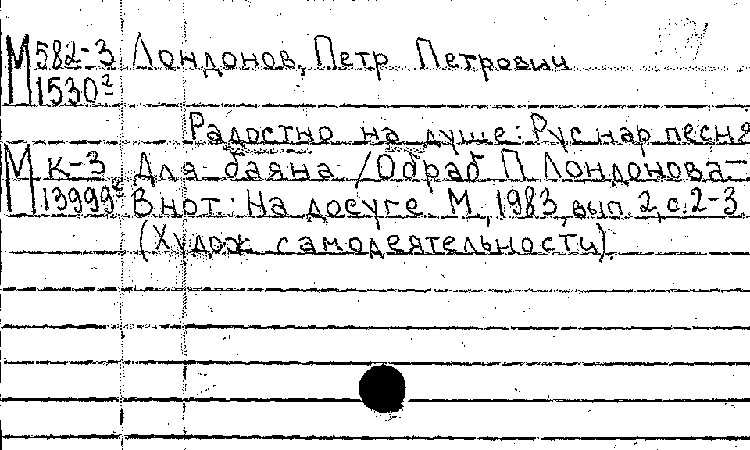 М 582-3 Лондонов, Петр Петрович
1530²
Радостно на душе: Рус нар песня
М К-3 Для баяна / Обраб П Лондонова-
13999² В нот.: На досуге. М., 1983, вып. 2, с. 2-3.
(Худож самодеятельности).